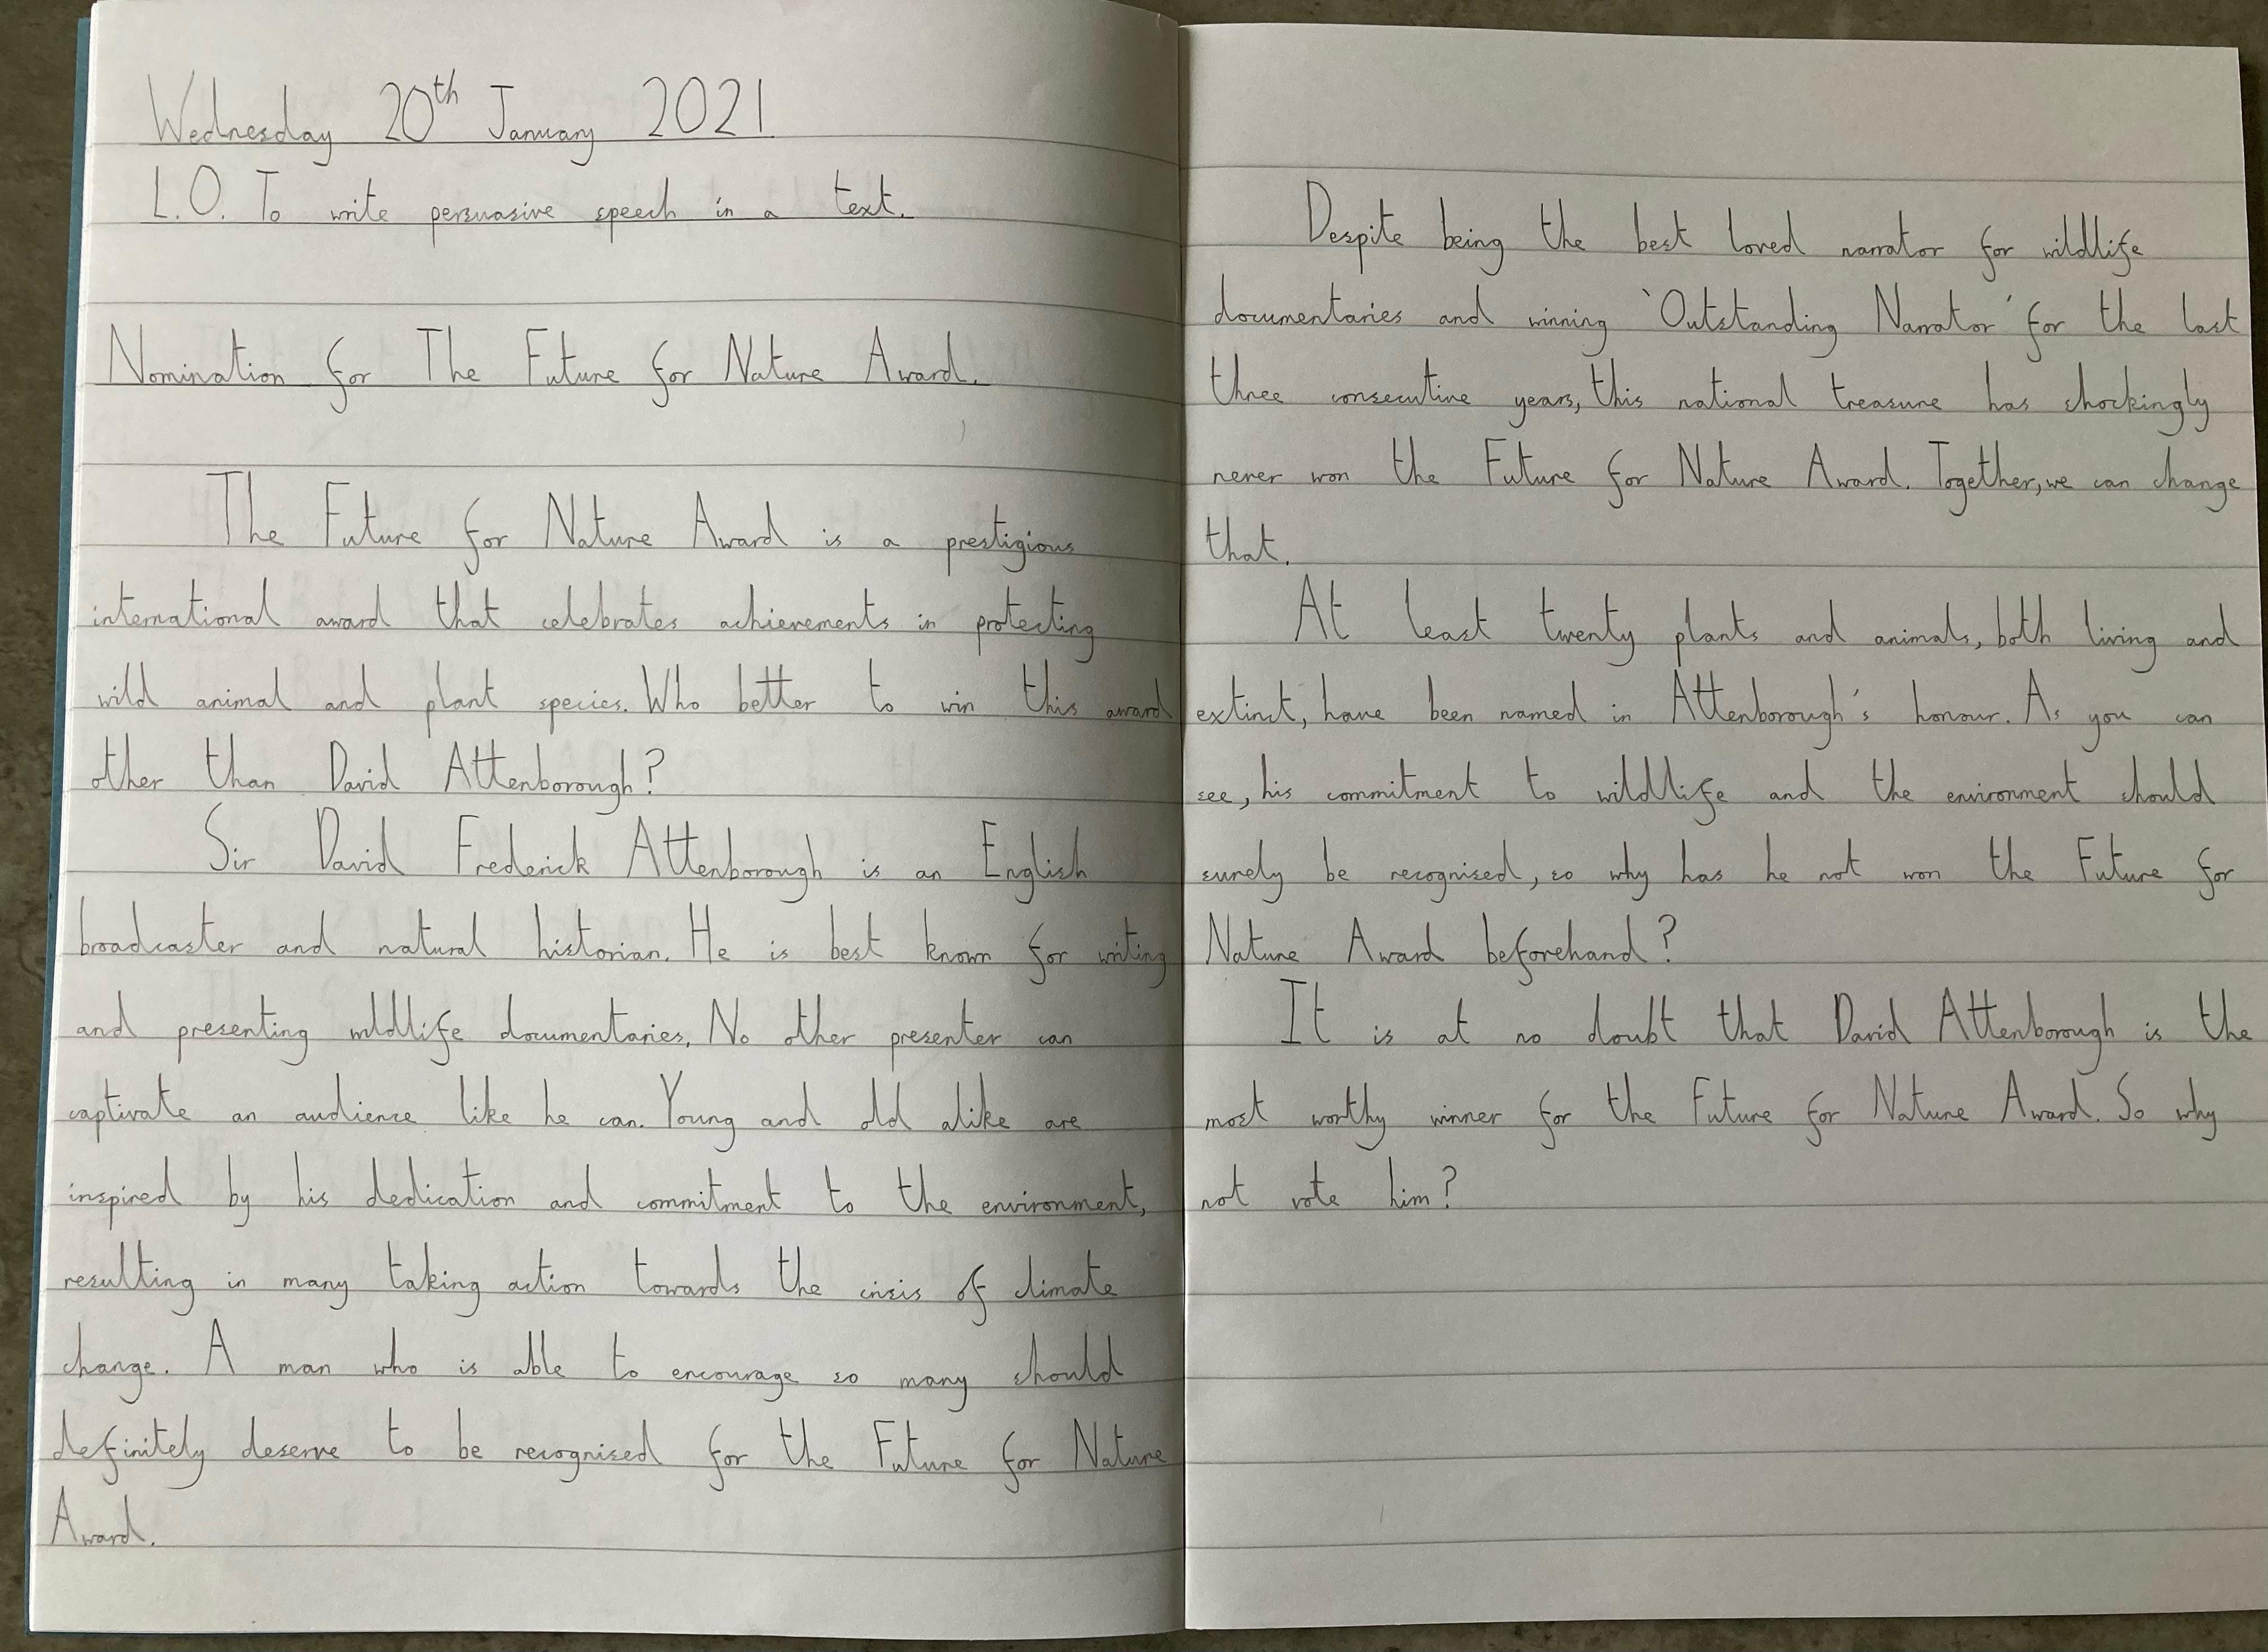 Wednesday 20th January 2021
L.O. To write persuasive speech in a text.
Nomination for The Future for Nature Award.
The Future for Nature Award is a prestigious
international award that celebrates achievements in protecting
wild animal and plant species. Who better to win this award
other than David Attenborough?
Sir David Frederick Attenborough is an English
broadcaster and natural historian. He is best known for writing
and presenting wildlife documentaries. No other presenter can
captivate an audience like he can. Young and old alike are
inspired by his dedication and commitment to the environment,
resulting in many taking action towards the crisis of climate
change. A man who is able to encourage so many should
definitely deserve to be recognised for the Future for Nature
Award.
Despite being the best loved narrator for wildlife
documentaries and winning 'Outstanding Narrator' for the last
three consecutive years, this national treasure has shockingly
never won the Future for Nature Award. Together, we can change
that.
At least twenty plants and animals, both living and
extinct, have been named in Attenborough's honour. As you can
see, his commitment to wildlife and the environment should
surely be recognised, so why has he not won the Future for
Nature Award beforehand?
It is at no doubt that David Attenborough is the
most worthy winner for the Future for Nature Award. So why
not vote him?